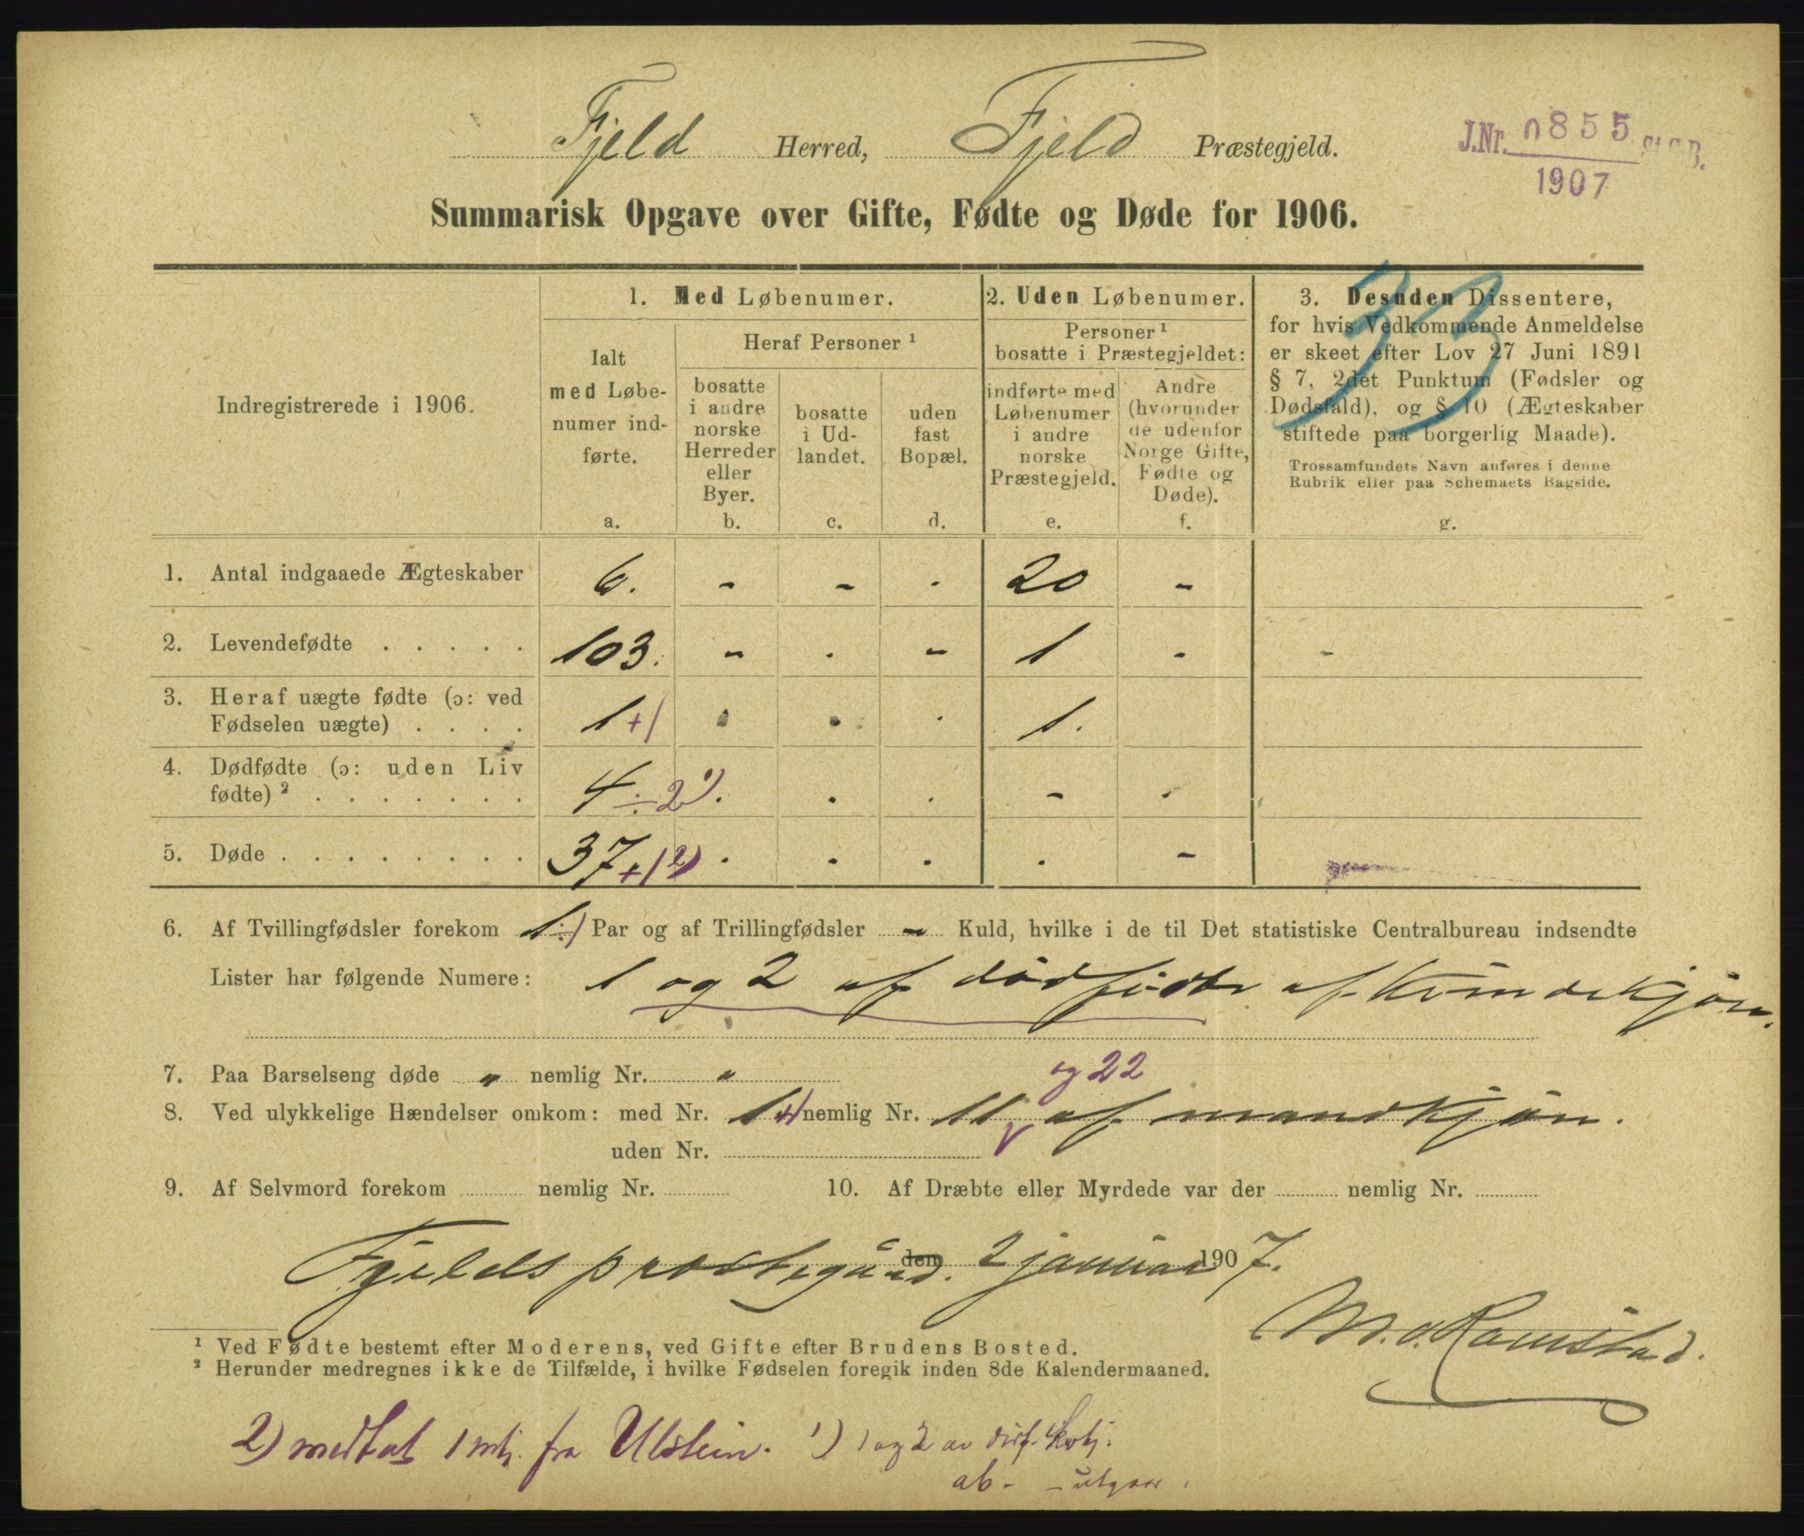 Fjeld Herred, Fjeld Præstegjeld.
J.Nr. 0855 St.C.B.
1907
Summarisk Opgave over Gifte, Fødte og Døde for 1906.
33
Indregistrerede i 1906.
1. Med Løbenumer.
Ialt med Løbenumer indførte.
a.
Heraf Personer ¹
bosatte i andre norske Herreder eller Byer.
b.
bosatte i Udlandet.
c.
uden fast Bopæl.
d.
2. Uden Løbenumer.
Personer ¹ bosatte i Præstegjeldet:
indførte med Løbenumer i andre norske Præstegjeld.
e.
Andre (hvorunder de udenfor Norge Gifte, Fødte og Døde).
f.
3. Desuden Dissentere,
for hvis Vedkommende Anmeldelse
er skeet efter Lov 27 Juni 1891
§ 7, 2det Punktum (Fødsler og
Dødsfald), og § 10 (Ægteskaber
stiftede paa borgerlig Maade).
Trossamfundets Navn anføres i denne
Rubrik eller paa Schemaets Bagside.
g.
1. Antal indgaaede Ægteskaber 6. - - . 20 -
2. Levendefødte . . . . . 103. - . - 1 - -
3. Heraf uægte fødte (ɔ: ved
Fødselen uægte) . . . . 1 +1 . . . 1.
4. Dødfødte (ɔ: uden Liv
fødte) ² . . . . . . . 4 ÷2 ¹) . . . - .
5. Døde . . . . . . . . 37 +1 ²) . . . . -
6. Af Tvillingfødsler forekom 1 ÷1 Par og af Trillingfødsler - Kuld, hvilke i de til Det statistiske Centralbureau indsendte
Lister har følgende Numere: 1 og 2 af dødfødte af Kvindekjøn.
7. Paa Barselseng døde " nemlig Nr. "
og 22
8. Ved ulykkelige Hændelser omkom: med Nr. 1 +1 nemlig Nr. 11 af mandkjøn.
uden Nr.
9. Af Selvmord forekom nemlig Nr. 10. Af Dræbte eller Myrdede var der nemlig Nr.
Fjelds præstegård. den 2 januar 1907.
M. O. Ramstad.
¹ Ved Fødte bestemt efter Moderens, ved Gifte efter Brudens Bosted.
² Herunder medregnes ikke de Tilfælde, i hvilke Fødselen foregik inden 8de Kalendermaaned.
2) medtat 1 mkj. fra Ulstein. 1) 1 og 2 av dødf. kvkj.
ab- - utgaar.